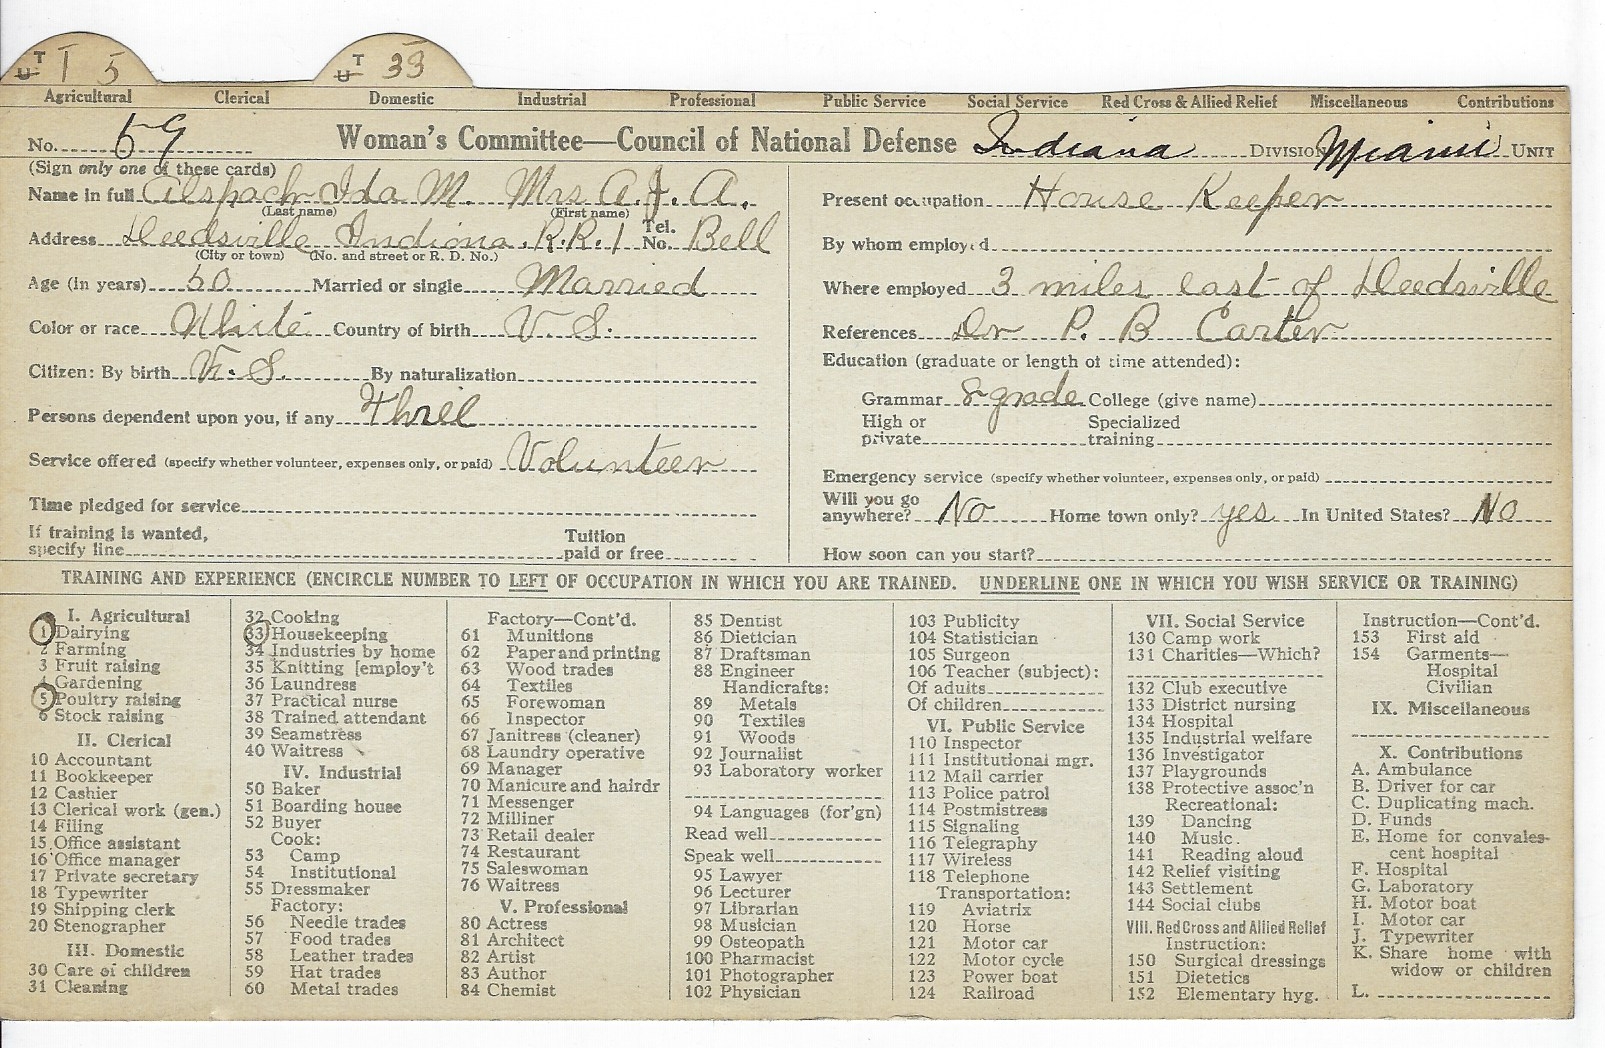 T U 1 5 T U 33
Agricultural Clerical Domestic Industrial Professional Public Service Social Service Red Cross & Allied Relief Miscellaneous Contributions
No. 59 Woman's Committee—Council of National Defense Indiana DIVISION Miami UNIT
(Sign only one of these cards)
Name in full Alspach Ida M. Mrs A. J. A.
(Last name) (First name)
Address Deedsville Indiana. R.R. 1 Tel. No. Bell
(City or town) (No. and street or R. D. No.)
Age (in years) 50 Married or single Married
Color or race White Country of birth U. S.
Citizen: By birth U. S. By naturalization
Persons dependent upon you, if any Three
Service offered (specify whether volunteer, expenses only, or paid) Volunteer
Time pledged for service
If training is wanted, specify line Tuition paid or free
Present occupation House Keeper
By whom employed
Where employed 3 miles east of Deedsville
References Dr P. B Carter
Education (graduate or length of time attended):
Grammar 8 grade College (give name)
High or private Specialized training
Emergency service (specify whether volunteer, expenses only, or paid)
Will you go anywhere? No Home town only? yes In United States? No
How soon can you start?
TRAINING AND EXPERIENCE (ENCIRCLE NUMBER TO LEFT OF OCCUPATION IN WHICH YOU ARE TRAINED. UNDERLINE ONE IN WHICH YOU WISH SERVICE OR TRAINING)
I. Agricultural
1 Dairying
2 Farming
3 Fruit raising
4 Gardening
5 Poultry raising
6 Stock raising
II. Clerical
10 Accountant
11 Bookkeeper
12 Cashier
13 Clerical work (gen.)
14 Filing
15 Office assistant
16 Office manager
17 Private secretary
18 Typewriter
19 Shipping clerk
20 Stenographer
III. Domestic
30 Care of children
31 Cleaning
32 Cooking
33 Housekeeping
34 Industries by home
35 Knitting [employ't
36 Laundress
37 Practical nurse
38 Trained attendant
39 Seamstress
40 Waitress
IV. Industrial
50 Baker
51 Boarding house
52 Buyer
Cook:
53 Camp
54 Institutional
55 Dressmaker
Factory:
56 Needle trades
57 Food trades
58 Leather trades
59 Hat trades
60 Metal trades
Factory—Cont'd.
61 Munitions
62 Paper and printing
63 Wood trades
64 Textiles
65 Forewoman
66 Inspector
67 Janitress (cleaner)
68 Laundry operative
69 Manager
70 Manicure and hairdr
71 Messenger
72 Milliner
73 Retail dealer
74 Restaurant
75 Saleswoman
76 Waitress
V. Professional
80 Actress
81 Architect
82 Artist
83 Author
84 Chemist
85 Dentist
86 Dietician
87 Draftsman
88 Engineer
Handicrafts:
89 Metals
90 Textiles
91 Woods
92 Journalist
93 Laboratory worker
94 Languages (for'gn)
Read well
Speak well
95 Lawyer
96 Lecturer
97 Librarian
98 Musician
99 Osteopath
100 Pharmacist
101 Photographer
102 Physician
103 Publicity
104 Statistician
105 Surgeon
106 Teacher (subject):
Of adults
Of children
VI. Public Service
110 Inspector
111 Institutional mgr.
112 Mail carrier
113 Police patrol
114 Postmistress
115 Signaling
116 Telegraphy
117 Wireless
118 Telephone
Transportation:
119 Aviatrix
120 Horse
121 Motor car
122 Motor cycle
123 Power boat
124 Railroad
VII. Social Service
130 Camp work
131 Charities—Which?
132 Club executive
133 District nursing
134 Hospital
135 Industrial welfare
136 Investigator
137 Playgrounds
138 Protective assoc'n
Recreational:
139 Dancing
140 Music.
141 Reading aloud
142 Relief visiting
143 Settlement
144 Social clubs
VIII. Red Cross and Allied Relief
Instruction:
150 Surgical dressings
151 Dietetics
152 Elementary hyg.
Instruction—Cont'd.
153 First aid
154 Garments—
Hospital
Civilian
IX. Miscellaneous
X. Contributions
A. Ambulance
B. Driver for car
C. Duplicating mach.
D. Funds
E. Home for convales-
cent hospital
F. Hospital
G. Laboratory
H. Motor boat
I. Motor car
J. Typewriter
K. Share home with
widow or children
L.